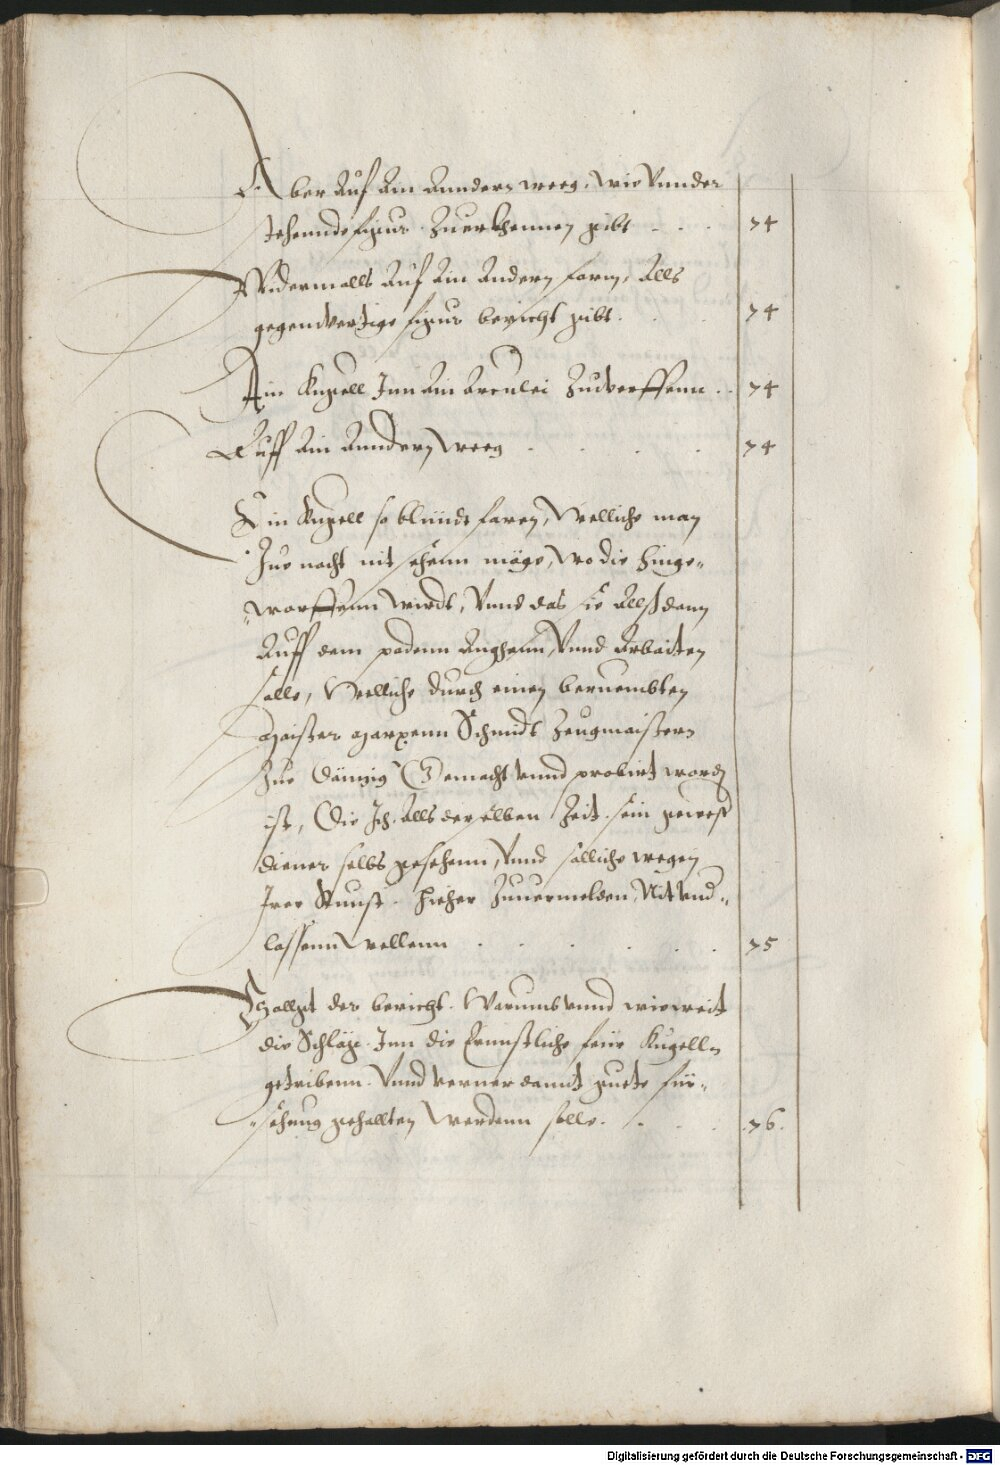 Aber Auf Ain Anndern weeg, wie Vnnder
stehennde figur Zuerkhennen gibt . . . 74
Widermalls Auf Ain Andern form, Alls
gegenwertige figur bericht gibt . . . 74
Ain Kugell Inn Ain Zuwerffenn . . 74
Auff Ain Anndern weeg . . . . 74
Ein Kugell so blünde faren, Welliche man
Zue nacht nit sehenn möge, wo die hinge„
„worffenn wirdt, Vnnd das sie Allß dann
Auff dem podenn Anghenn, Vnnd Arbaiten
solle, Welliche durch einen beruembten
Maister Schmidt Zeugmaistern
Zue Gemacht vnnd probirt worden
ist, Die Ich Alls derselben Zeit sein gewest
diener selbs gesehenn, Vnnd solliche wegen
Irer Kunst hieher Zuuermelden, Nit Vnd„
lassenn wellenn . . . . . . 75
Vollgt der bericht Warumb vnnd wieweit
die Schläge Inn die Ernnstliche feür Kugelln
getribenn Vnnd verner damit guete für„
„sehung gehallten werdenn solle . . . . 76.
Digitalisierung gefördert durch die Deutsche Forschungsgemeinschaft - DFG